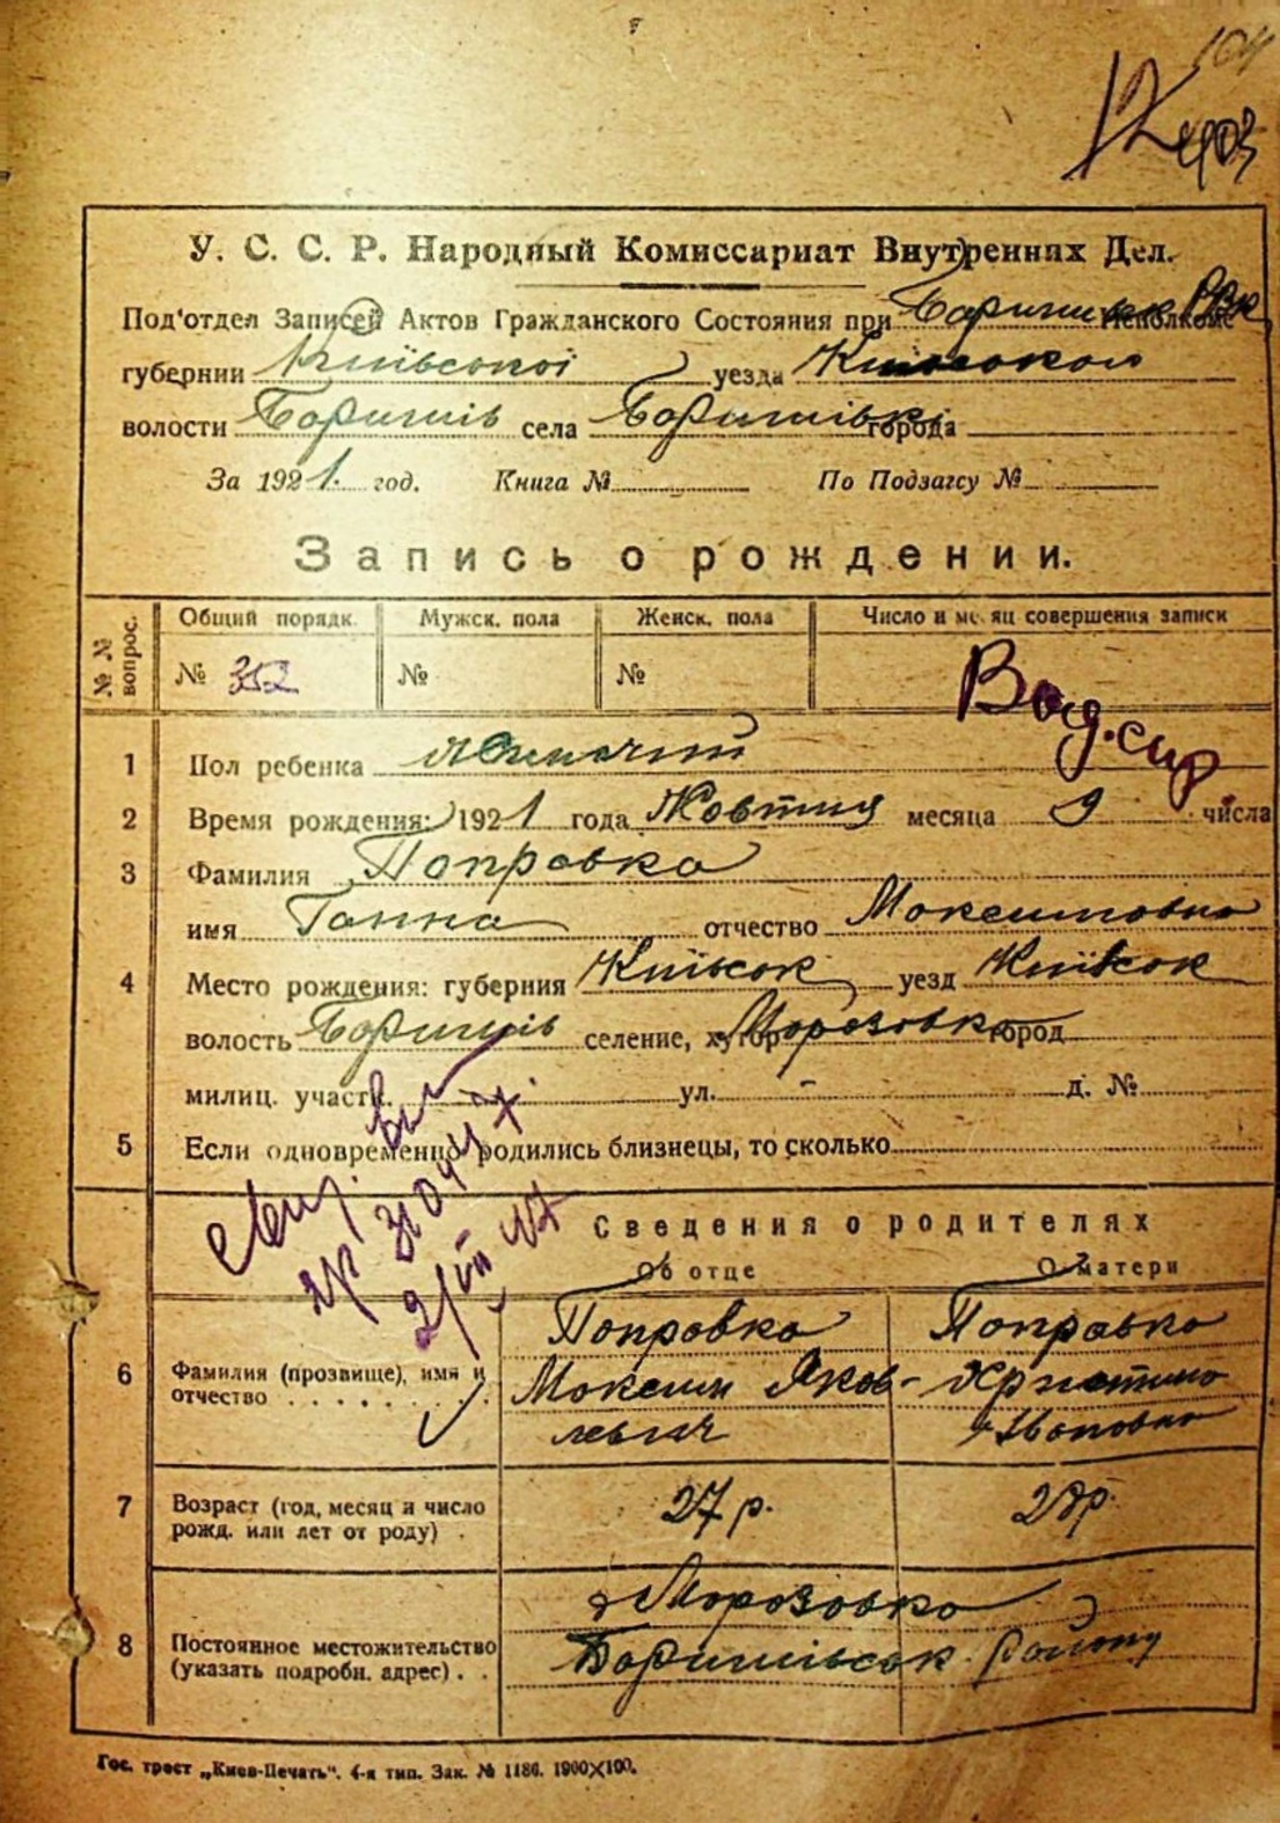 403
У. С. С. Р. Народный Комиссариат Внутренних Дел.
Под'отдел Записей Актов Гражданского Состояния при Баришівськ РВК Исполкоме
губернии Київської уезда Київськом
волости Баришів села Баришівкі города
За 1921. год. Книга № По Подзагсу №
Запись о рождении.
№ № вопрос. Общий порядк. Мужск. пола Женск. пола Число и месяц совершения записи
№ 352 № №
1 Пол ребенка
2 Время рождения: 1921 года Жовтня месяца 9 числа
3 Фамилия Поправка
имя Ганна отчество Максимовна
4 Место рождения: губерния Київськ уезд Київськ
волость Баришів селение, хутор Морозовка город
милиц. участк. ул. - д. №
5 Если одновременно родились близнецы, то сколько
2/VII 47
Сведения о родителях
Об отце О матери
Поправка Поправка
6 Фамилия (прозвище), имя и Максим Яков- Христина
отчество левич Ивановна
7 Возраст (год, месяц и число 27 р. 28 р.
рожд. или лет от роду)
Морозовка
8 Постоянное местожительство Баришівськ. району
(указать подробн. адрес)
Гос. трест „Киев-Печать". 4-я тип. Зак. № 1186. 1900X100.